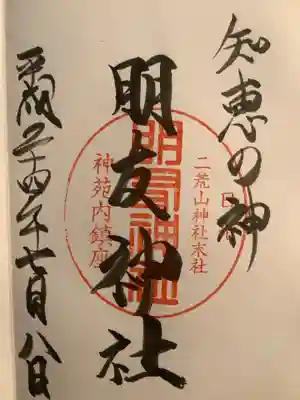 知恵の神
二荒山神社末社
朋友神社
朋友神社
神苑内鎮座
平成二十四年七月八日